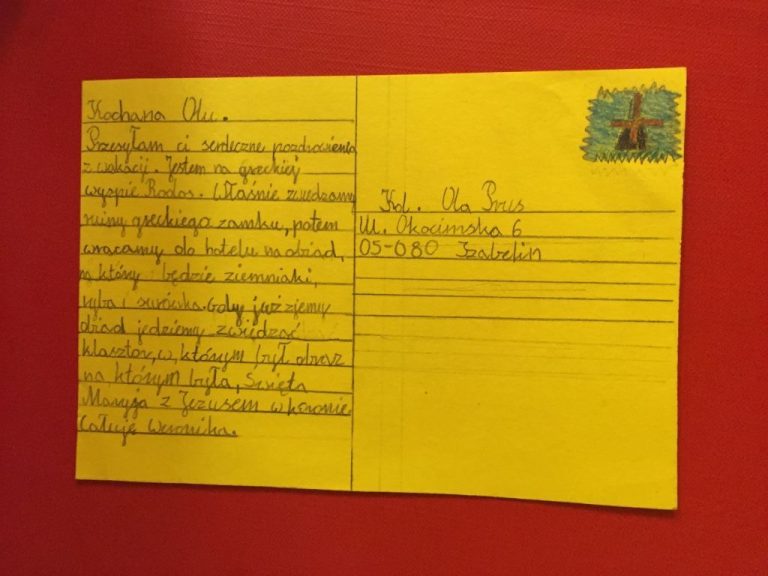 Kochana Olu.
Przesyłam ci serdeczne pozdrowienia
z wakacji. Jestem na greckiej
wyspie Rodos. Właśnie zwiedzamy
ruiny greckiego zamku, potem
wracamy do hotelu na obiad,
na który będzie ziemniaki,
ryba i surówka. Gdy już zjemy
obiad jedziemy zwiedzać
klasztor, w którym był obraz
na którym była, Święta
Maryja z Jezusem w koronie.
Całuję Weronika.
Kol. Ola Prus
Ul. Okocimska 6
05-080 Izabelin